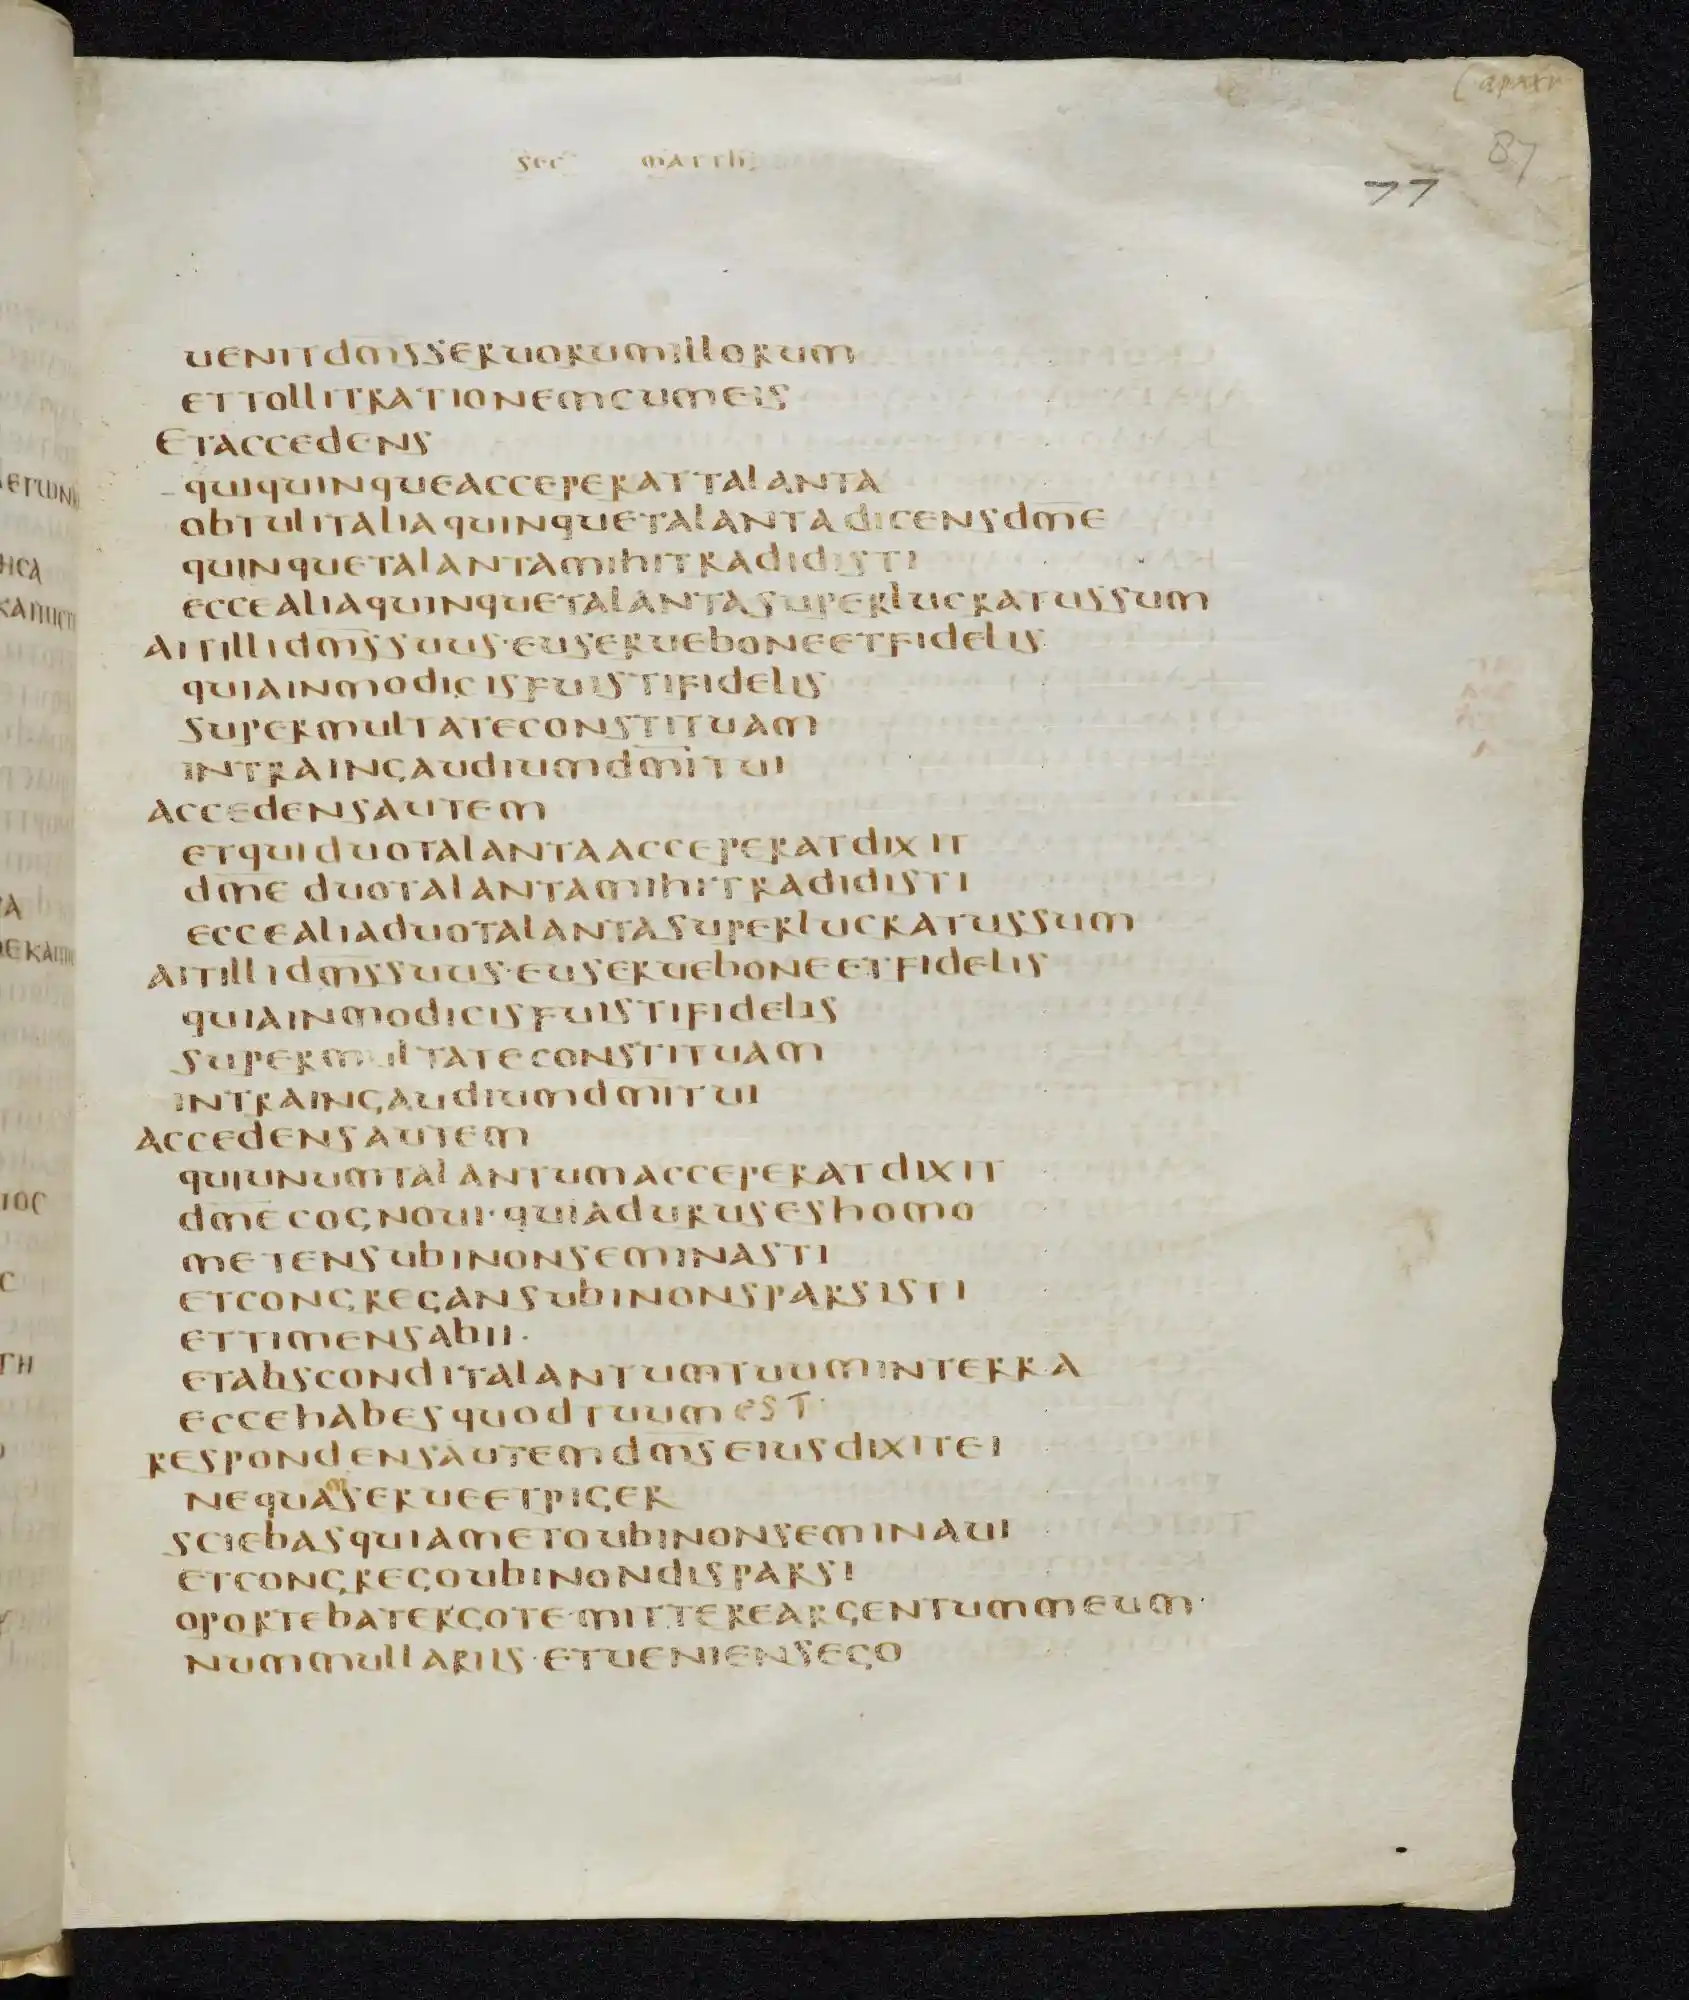 87
77
sec matth
uenitdm̅sseruorumillorum
ettollitrationemcumeis
etaccedens
quiquinqueacceperattalanta
obtulitaliaquinquetalantadicensdm̅e
quinquetalantamihitradidisti
eccealiaquinquetalantasuperlucratussum
aitillidm̅ssuus·euserueboneetfidelis
quiainmodicisfuistifidelis
supermultateconstituam
intraingaudiumdm̅itui
accedensautem
etquiduotalantaacceperatdixit
dm̅e duotalantamihitradidisti
eccealiaduotalantasuperlucratussum
aitillidm̅ssuus·euserueboneetfidelis
quiainmodicisfuistifidelis
supermultateconstituam
intraingaudiumdm̅itui
accedensautem
quiunumtalantumacceperatdixit
dm̅ecognoui·quiaduruseshomo
metensubinonseminasti
etcongregansubinonsparsisti
ettimensabii·
etabsconditalantumtuuminterra
eccehabesquodtuumest·
respondensautemdm̅seiusdixitei
nequamserueetpiger
sciebasquiametoubinonseminaui
etcongregoubinondisparsi
oportebatergote·mittereargentummeum·
nummullariis·etueniensego